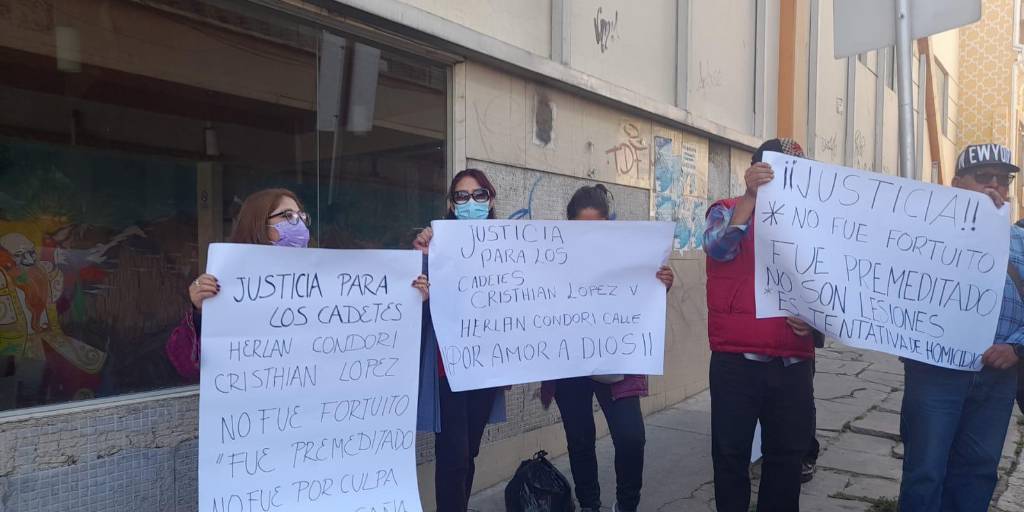 JUSTICIA PARA
LOS CADETES
HERLAN CONDORI
CRISTHIAN LOPEZ
NO FUE FORTUITO
"FUE PREMEDITADO
NO FUE POR CULPA
JUSTICIA
PARA LOS
CADETES
CRISTHIAN LOPEZ Y
HERLAN CONDORI CALLE
¡POR AMOR A DIOS!!
¡¡JUSTICIA!!
* NO FUE FORTUITO
FUE PREMEDITADO
* NO SON LESIONES
ES TENTATIVA DE HOMICIDIO
NEW YO